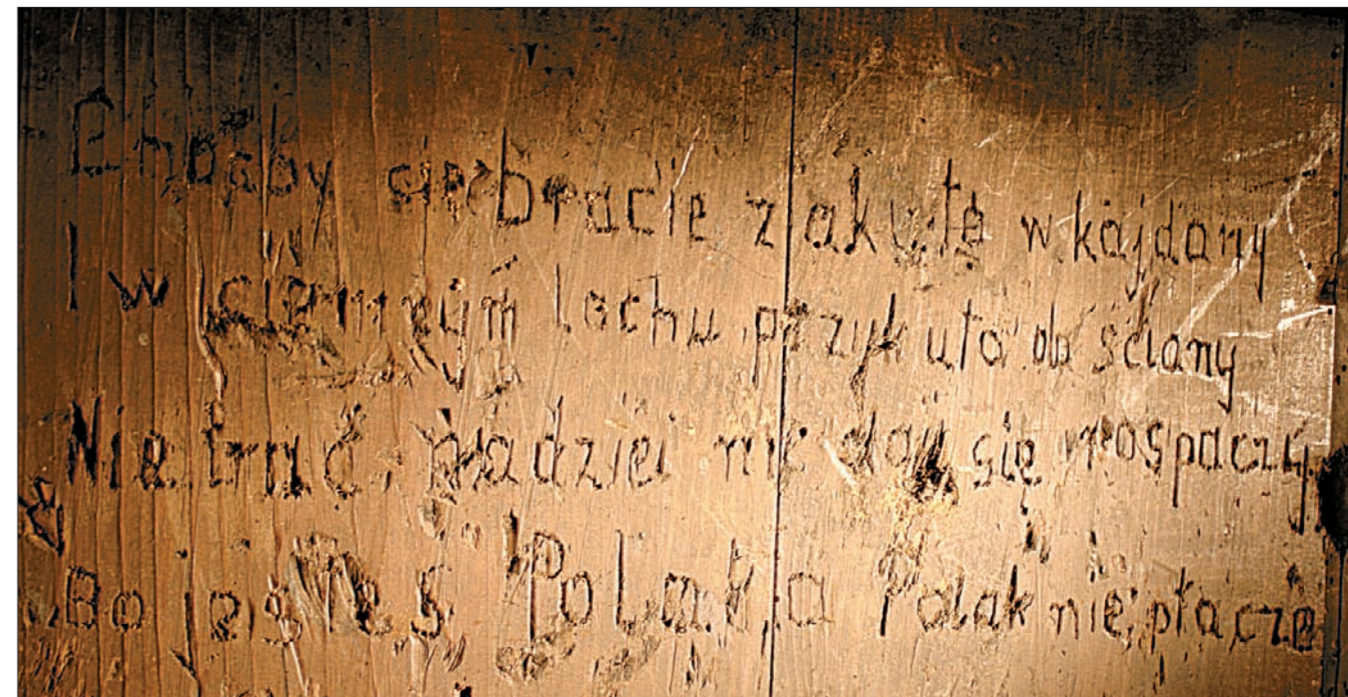 Choćby cię bracie zakuto w kajdany
I w ciemnym lochu przykuto do ściany
Nie trać nadziei nie daj się rospaczy
Bo jesteś Polak, a Polak nie płacze